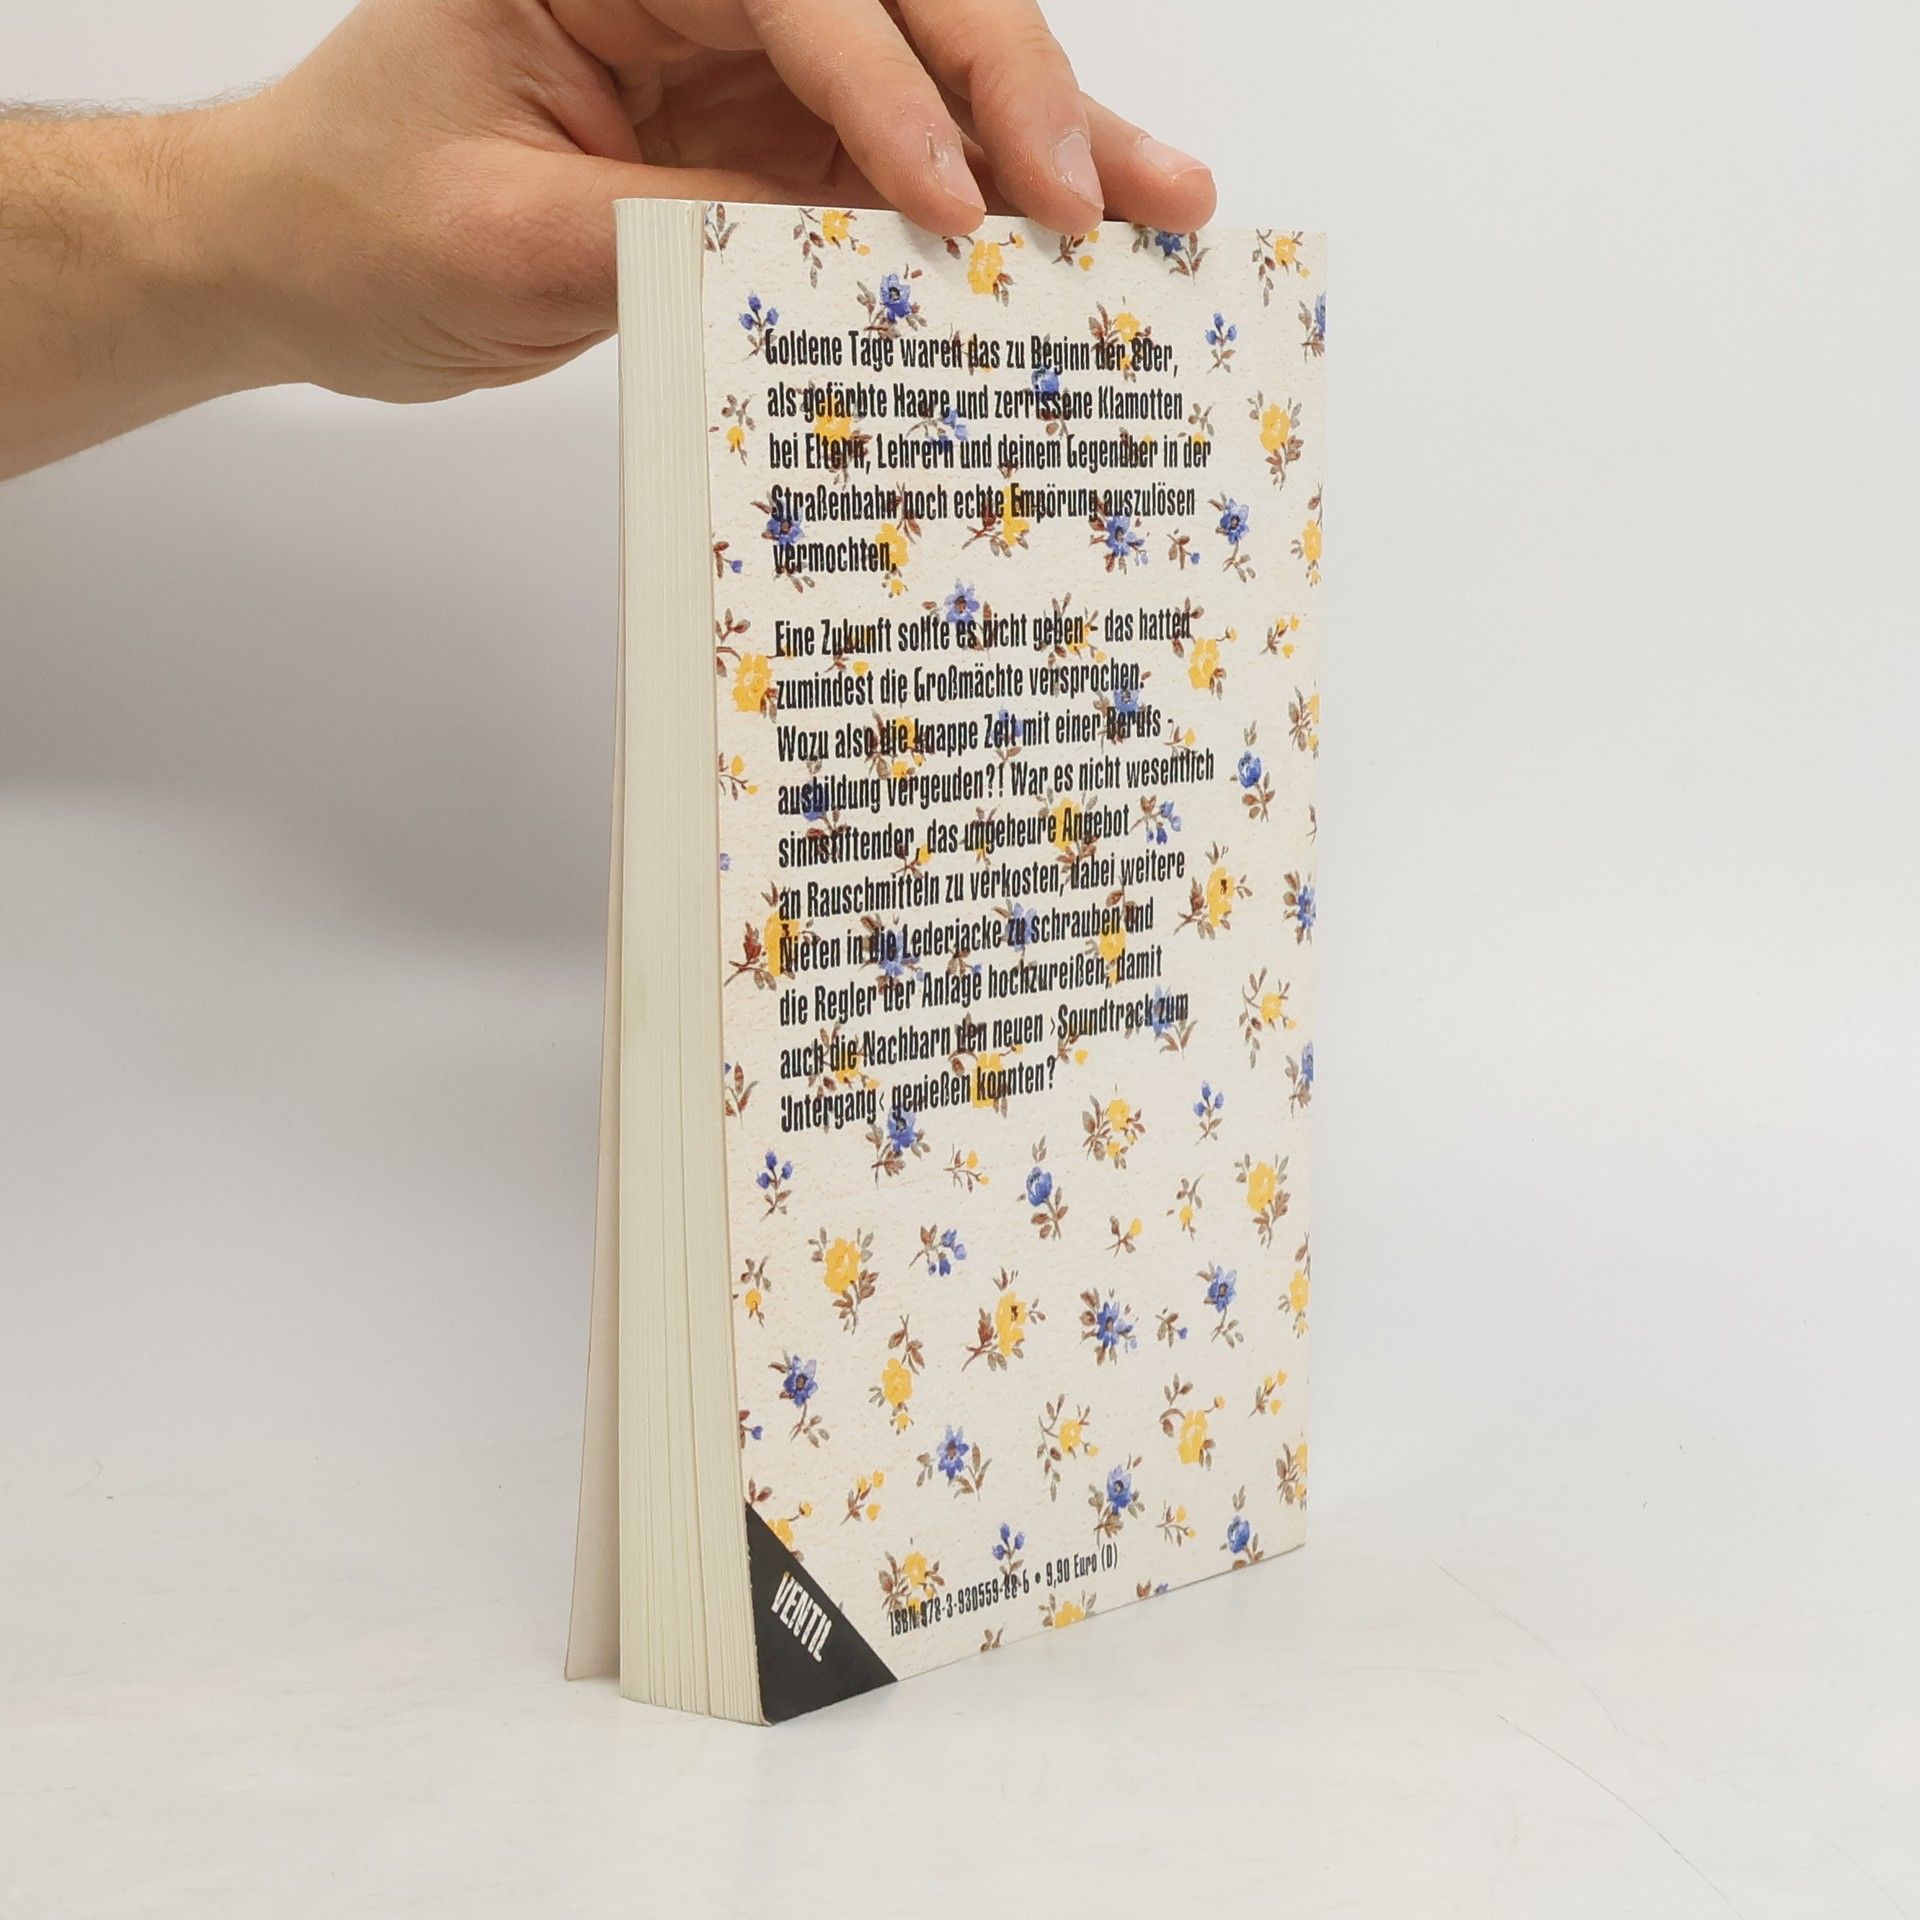 Goldene Tage waren das zu Beginn der 80er,
als gefärbte Haare und zerrissene Klamotten
bei Eltern, Lehrern und deinem Gegenüber in der
Straßenbahn noch echte Empörung auszulösen
vermochten.
Eine Zukunft sollte es nicht geben – das hatten
zumindest die Großmächte versprochen.
Wozu also die knappe Zeit mit einer Berufs -
ausbildung vergeuden?! War es nicht wesentlich
sinnstiftender, das ungeheure Angebot
an Rauschmitteln zu verkosten, dabei weitere
Nieten in die Lederjacke zu schrauben und
die Regler der Anlage hochzureißen, damit
auch die Nachbarn den neuen ›Soundtrack zum
Untergang‹ genießen konnten?
VENTIL
ISBN 978-3-930559-88-6 • 9,90 Euro (D)